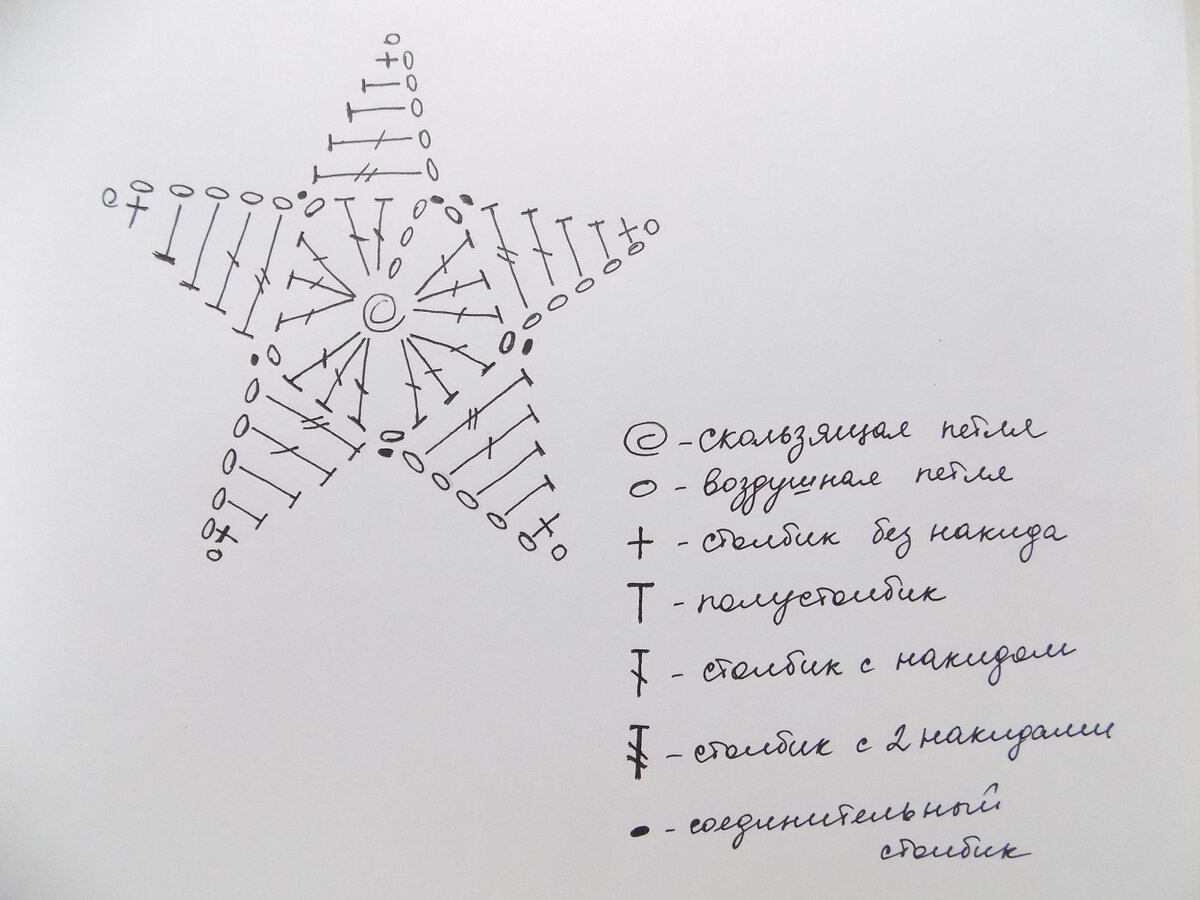 - скользящая петля
- воздушная петля
- столбик без накида
- полустолбик
- столбик с накидом
- столбик с 2 накидами
- соединительный
столбик